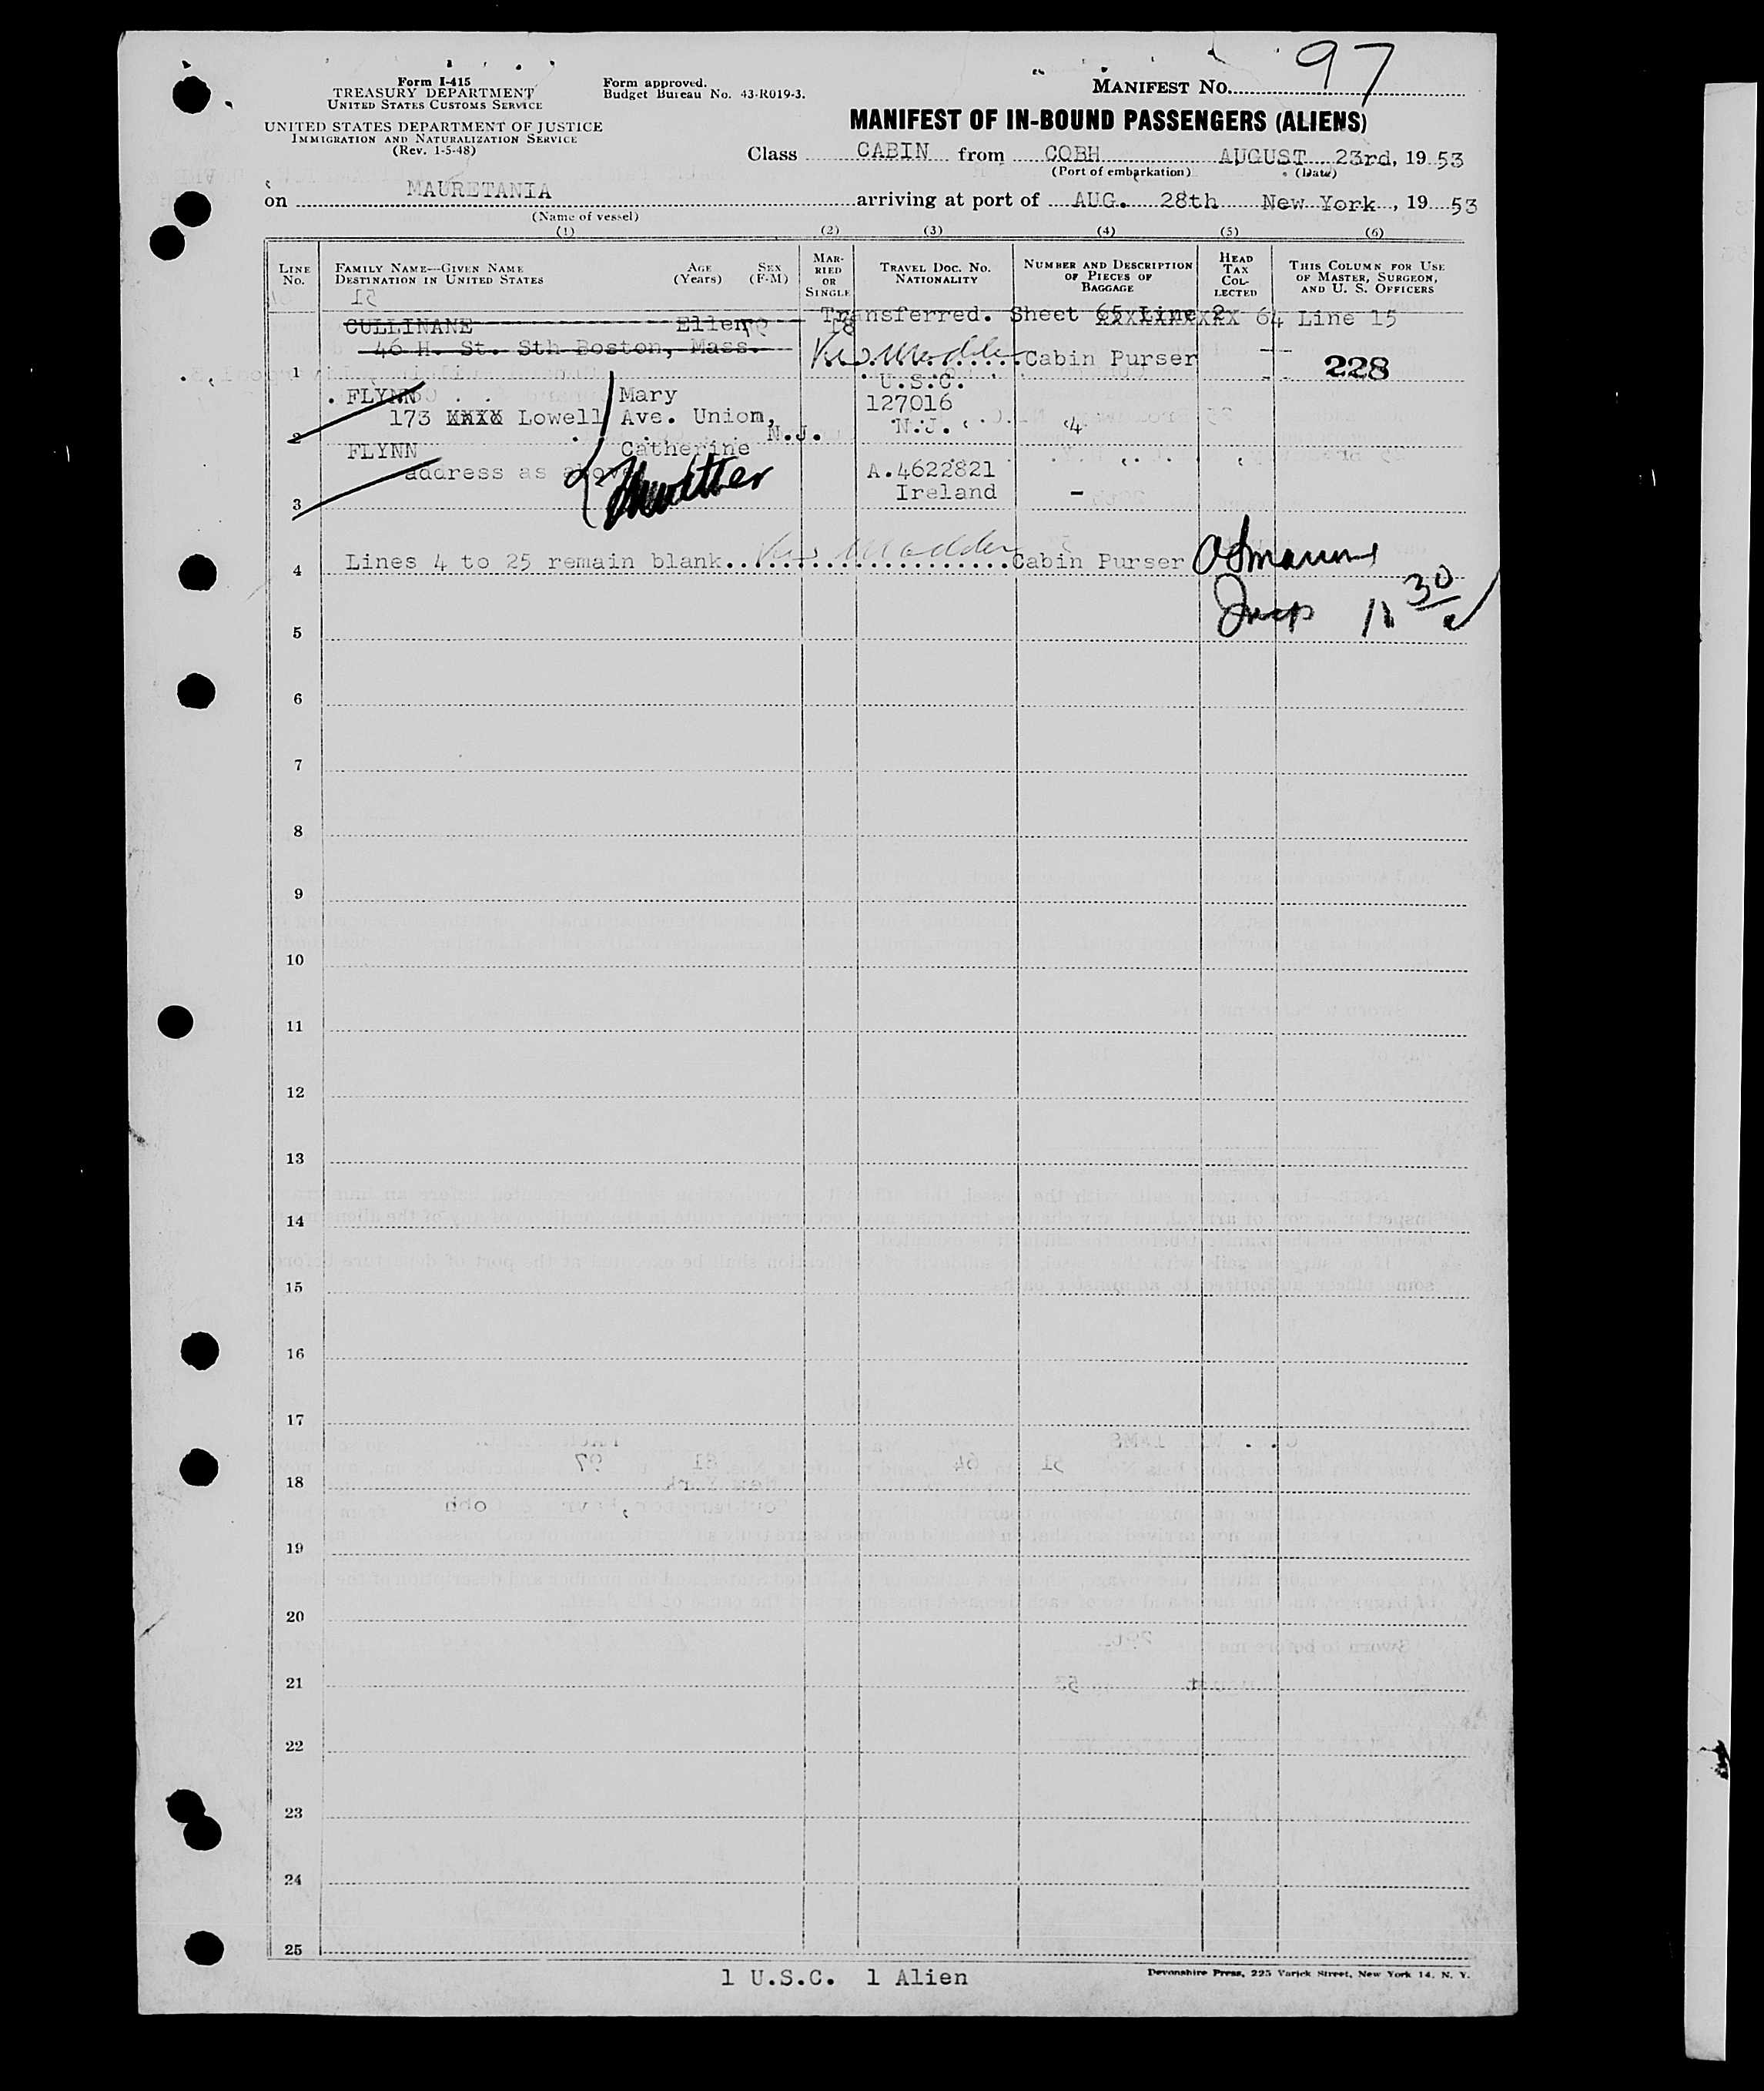 97
Form I-415
TREASURY DEPARTMENT
UNITED STATES CUSTOMS SERVICE
Form approved.
Budget Bureau No. 43-R019-3.
MANIFEST NO.
UNITED STATES DEPARTMENT OF JUSTICE
IMMIGRATION AND NATURALIZATION SERVICE
(Rev. 1-5-48)
MANIFEST OF IN-BOUND PASSENGERS (ALIENS)
Class CABIN from COBH AUGUST 23rd, 19 53
(Port of embarkation) (Date)
on MAURETANIA arriving at port of AUG. 28th New York, 19 53
(Name of vessel)
(1) (2) (3) (4) (5) (6)
LINE NO. FAMILY NAME—GIVEN NAME DESTINATION IN UNITED STATES AGE (Years) SEX (F-M) MARRIED OR SINGLE TRAVEL DOC. NO. NATIONALITY NUMBER AND DESCRIPTION OF PIECES OF BAGGAGE HEAD TAX COLLECTED THIS COLUMN FOR USE OF MASTER, SURGEON, AND U. S. OFFICERS
CULLINANE Ellen Transferred. Sheet 65 Line 2 64 Line 15
46 H. St. Sth Boston, Mass. Cabin Purser - - 228
1 U.S.C.
FLYNN Mary 127016
173 XXXX Lowell Ave. Union, N.J. 4
2 N.J.
FLYNN Catherine
address as above A.4622821
3 Ireland -
Lines 4 to 25 remain blank.................... Cabin Purser
4
Insp 11 30
5
6
7
8
9
10
11
12
13
14
15
16
17
18
19
20
21
22
23
24
25
1 U.S.C. 1 Alien
Devonshire Press, 225 Varick Street, New York 14, N. Y.